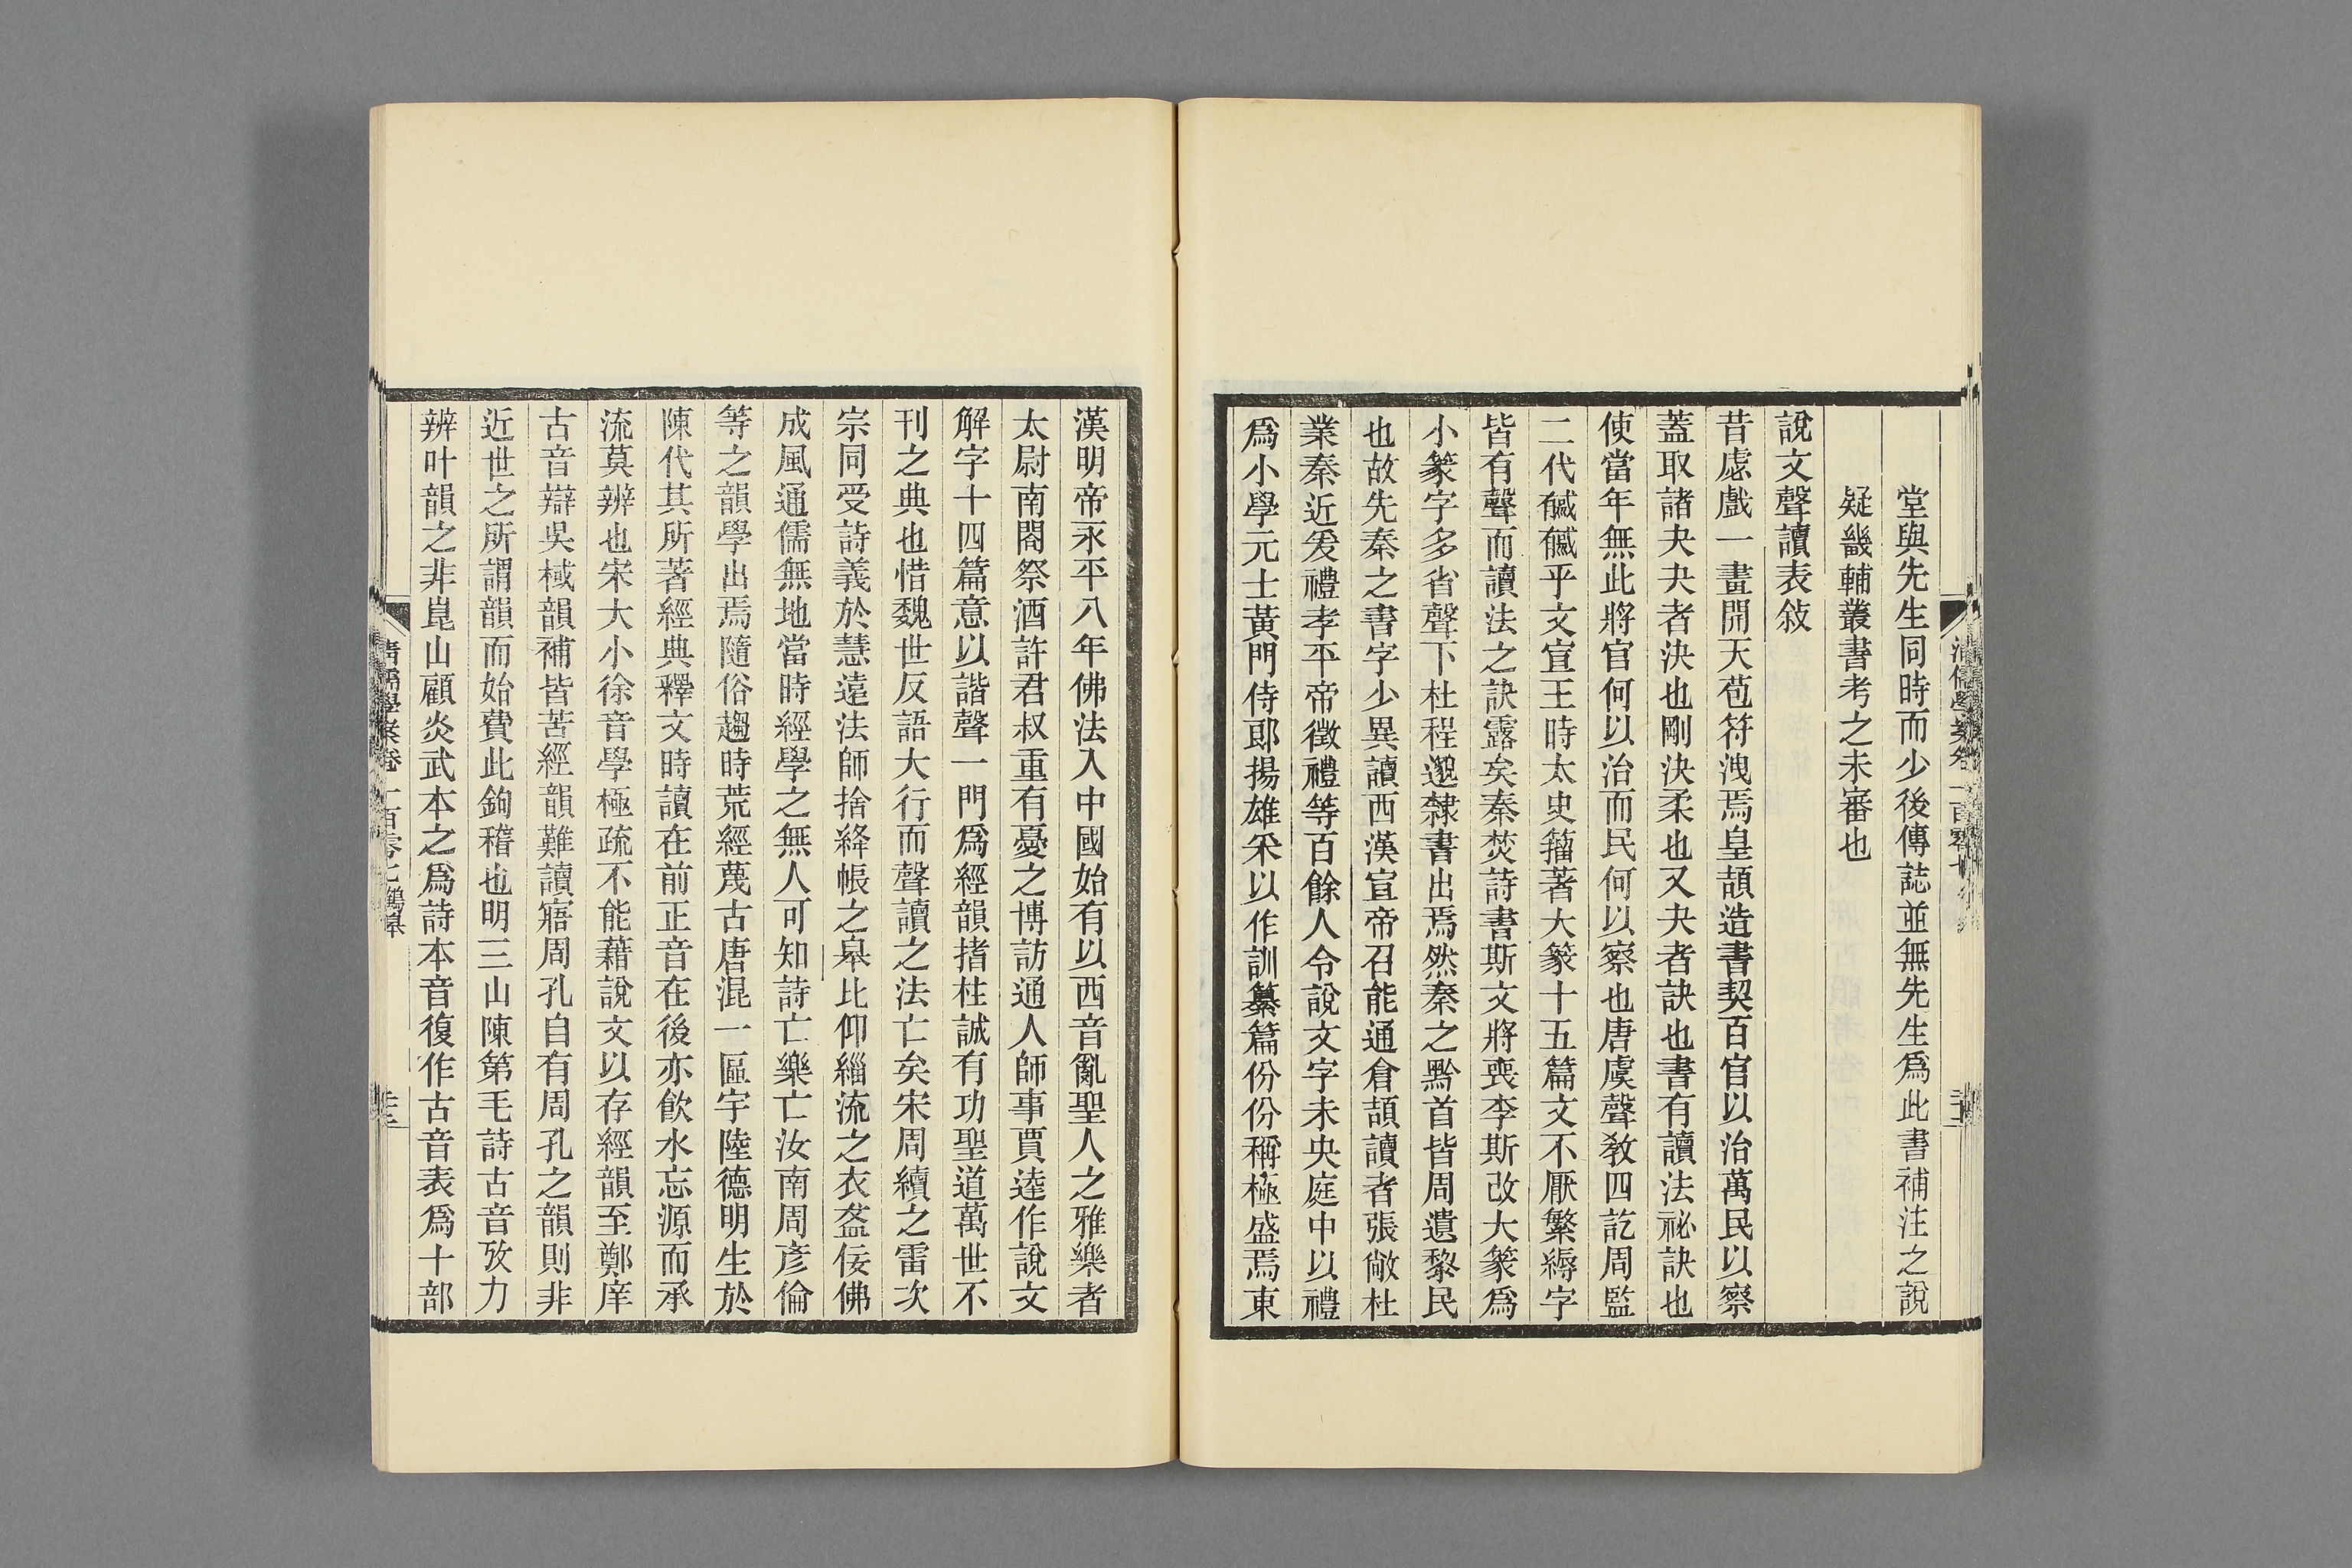 堂與先生同時而少後傳誌並無先生爲此書補注之說
疑畿輔叢書考之未審也
說文聲讀表敍
昔虙戲一畫開天苞符洩焉皇頡造書契百官以治萬民以察
蓋取諸夬夬者決也剛決柔也又夬者訣也書有讀法祕訣也
使當年無此將官何以治而民何以察也唐虞聲敎四訖周監
二代䎫䎫乎文宣王時太史籒著大篆十五篇文不厭繁縟字
皆有聲而讀法之訣露矣秦焚詩書斯文將喪李斯改大篆爲
小篆字多省聲下杜程邈隸書出焉然秦之黔首皆周遺黎民
也故先秦之書字少異讀西漢宣帝召能通倉頡讀者張敞杜
業秦近爰禮孝平帝徵禮等百餘人令說文字未央庭中以禮
爲小學元士黃門侍郎揚雄采以作訓纂篇份份稱極盛焉東
漢明帝永平八年佛法入中國始有以西音亂聖人之雅樂者
太尉南閣祭酒許君叔重有憂之博訪通人師事賈逵作說文
解字十四篇意以諧聲一門爲經韻揩柱誠有功聖道萬世不
刊之典也惜魏世反語大行而聲讀之法亡矣宋周續之雷次
宗同受詩義於慧遠法師捨絳帳之皋比仰緇流之衣盋佞佛
成風通儒無地當時經學之無人可知詩亡樂亡汝南周彥倫
等之韻學出焉隨俗趨時荒經蔑古唐混一區宇陸德明生於
陳代其所著經典釋文時讀在前正音在後亦飮水忘源而承
流莫辨也宋大小徐音學極疏不能藉說文以存經韻至鄭庠
古音辯吳棫韻補皆苦經韻難讀寤周孔自有周孔之韻則非
近世之所謂韻而始費此鉤稽也明三山陳第毛詩古音攷力
辨叶韻之非崑山顧炎武本之爲詩本音復作古音表爲十部
清儒學案卷一百零七 鶴皋